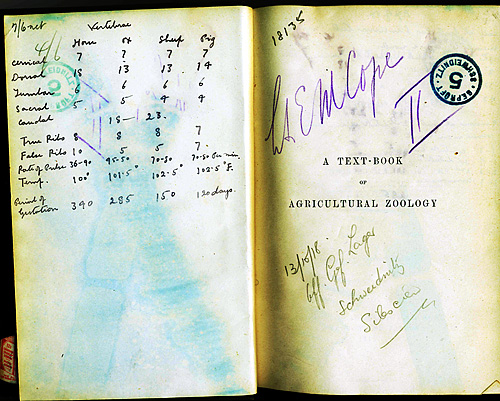 7/6 net
4/6
Vertebrae
Horse Ox Sheep Pig
Cervical 7 7 7 7
Dorsal 18 13 13 14
Lumbar 6 6 6 6
Sacral 5 5 4 4
Caudal 18 — 23.
True Ribs 8 8 8 7
False Ribs 10 5 5 7.
Rate of Pulse 36-40 45-50 70-80 70-80 per min.
Temp. 100° 101.5° 102.5° 102.5°F.
Period of
Gestation 340 285 150 120 days.
18135
Lt E W Cope
II
GEPRÜFT
5
SCHWEIDNITZ
A TEXT-BOOK
OF
AGRICULTURAL ZOOLOGY
13/10/18
Off Gef Lager
Schweidnitz
Silesien